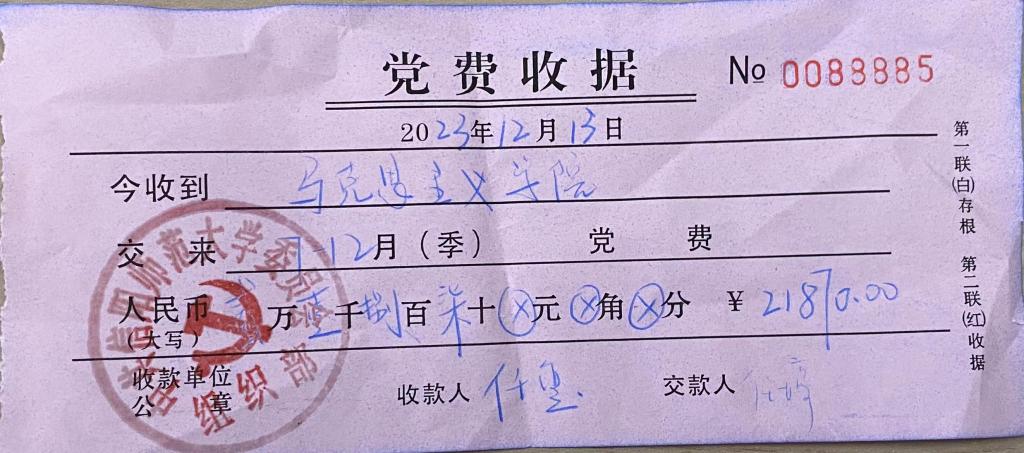 党费收据 № 0088885
2023年12月13日
今收到 马克思主义学院
交来 7-12月(季) 党费
人民币 贰万壹千捌百柒十ⓧ元ⓧ角ⓧ分 ¥ 21870.00
(大写)
收款单位
公章
收款人 任
交款人
第一联(白)存根 第二联(红)收据
师范大学委员会
组织部